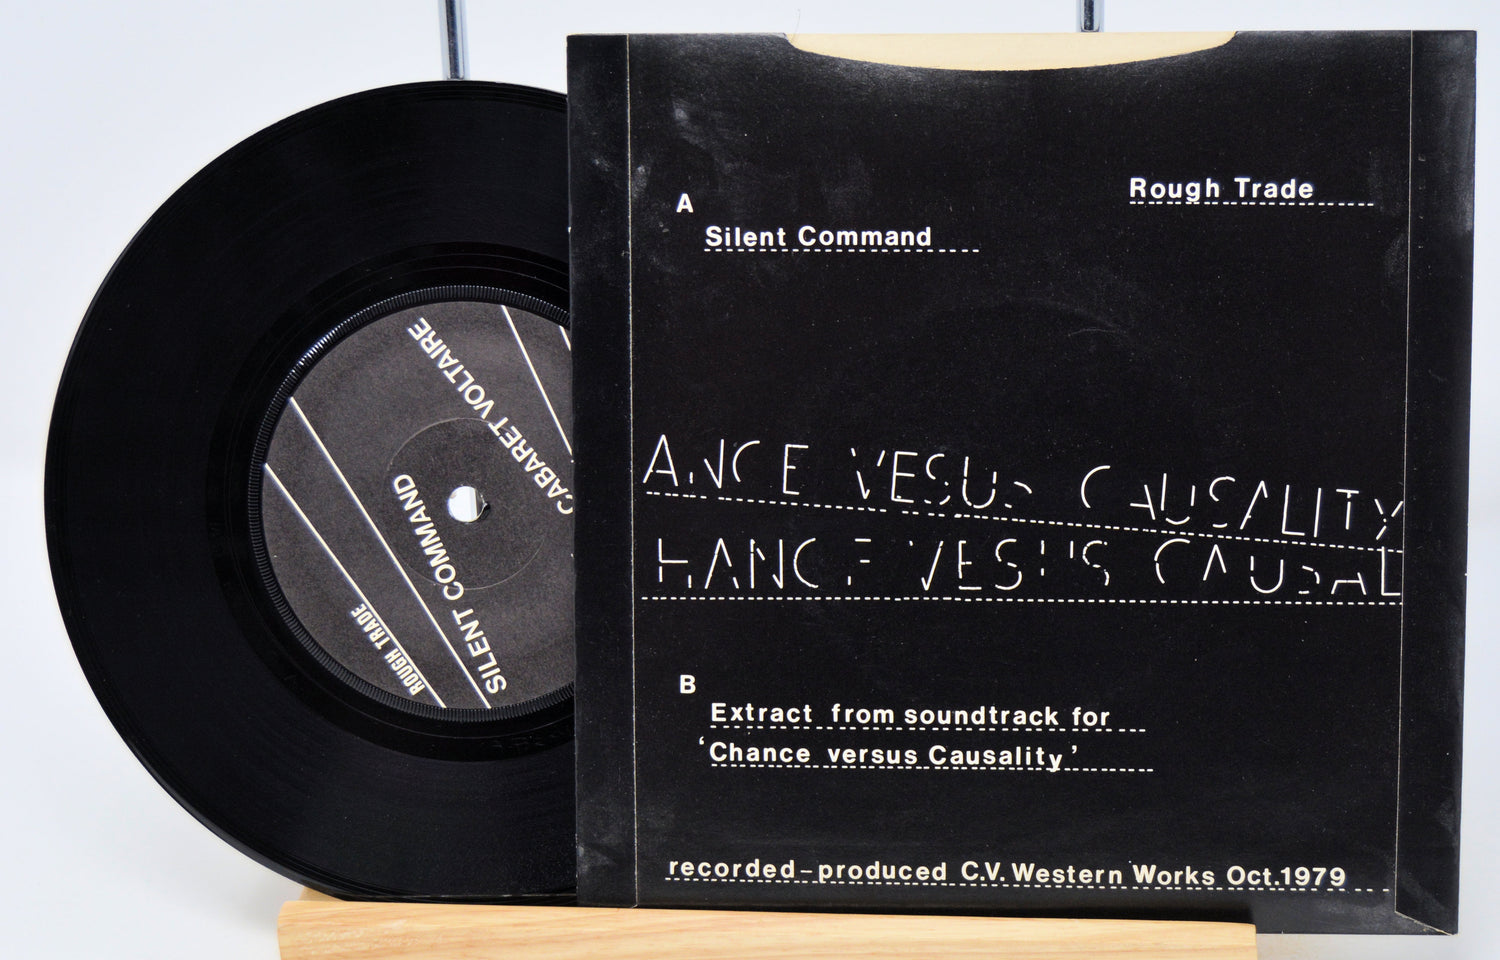 CABARET VOLTAIRE
SILENT COMMAND
ROUGH TRADE
Rough Trade
A
Silent Command
ANCE VESUS CAUSALITY
HANCE VESUS CAUSAL
B
Extract from soundtrack for
‘Chance versus Causality’
recorded–produced C.V. Western Works Oct.1979